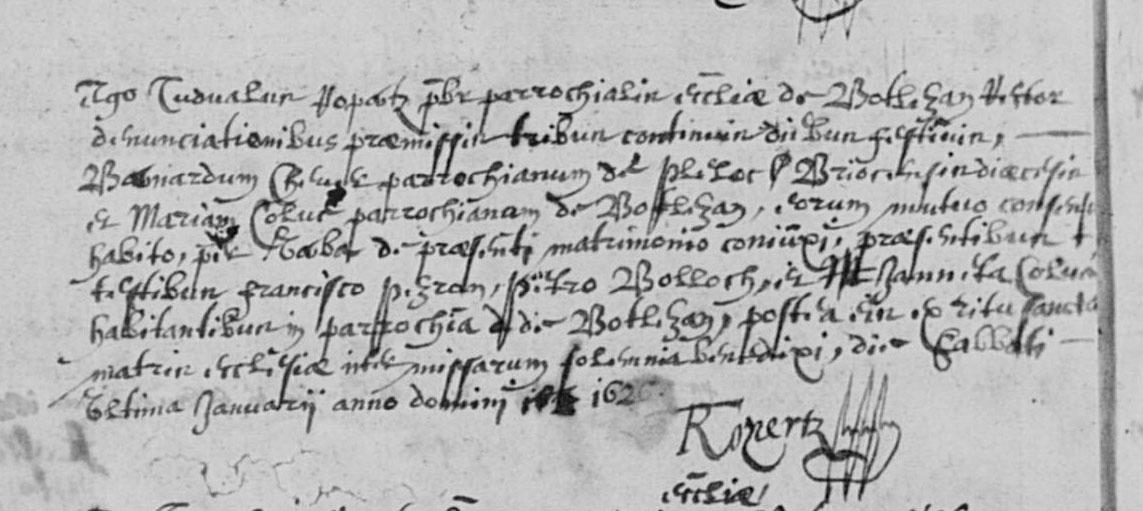 Ego Tudualus Ropartz pbr parrochialis eccliæ de Botlezan Rector
denunciationibus præmissis tribus continuis diebus festivis,
Bernardum parrochianum de Pleloc Briocensis diæcesis
et Mariam Coluec parrochianam de Botlezan, eorum mutuo consensu
habito, per verba de præsenti matrimonio coniunxi, præsentibus
testibus francisco pezron, petro Bolloch, et Janneta
habitantibus in parrochia de Botlezan, postea eis ex ritu sanctæ
matris ecclesiæ inter missarum solemnia benedixi, die Sabbati
Ultima Januarii anno domini 162
Ropertz
eccliæ